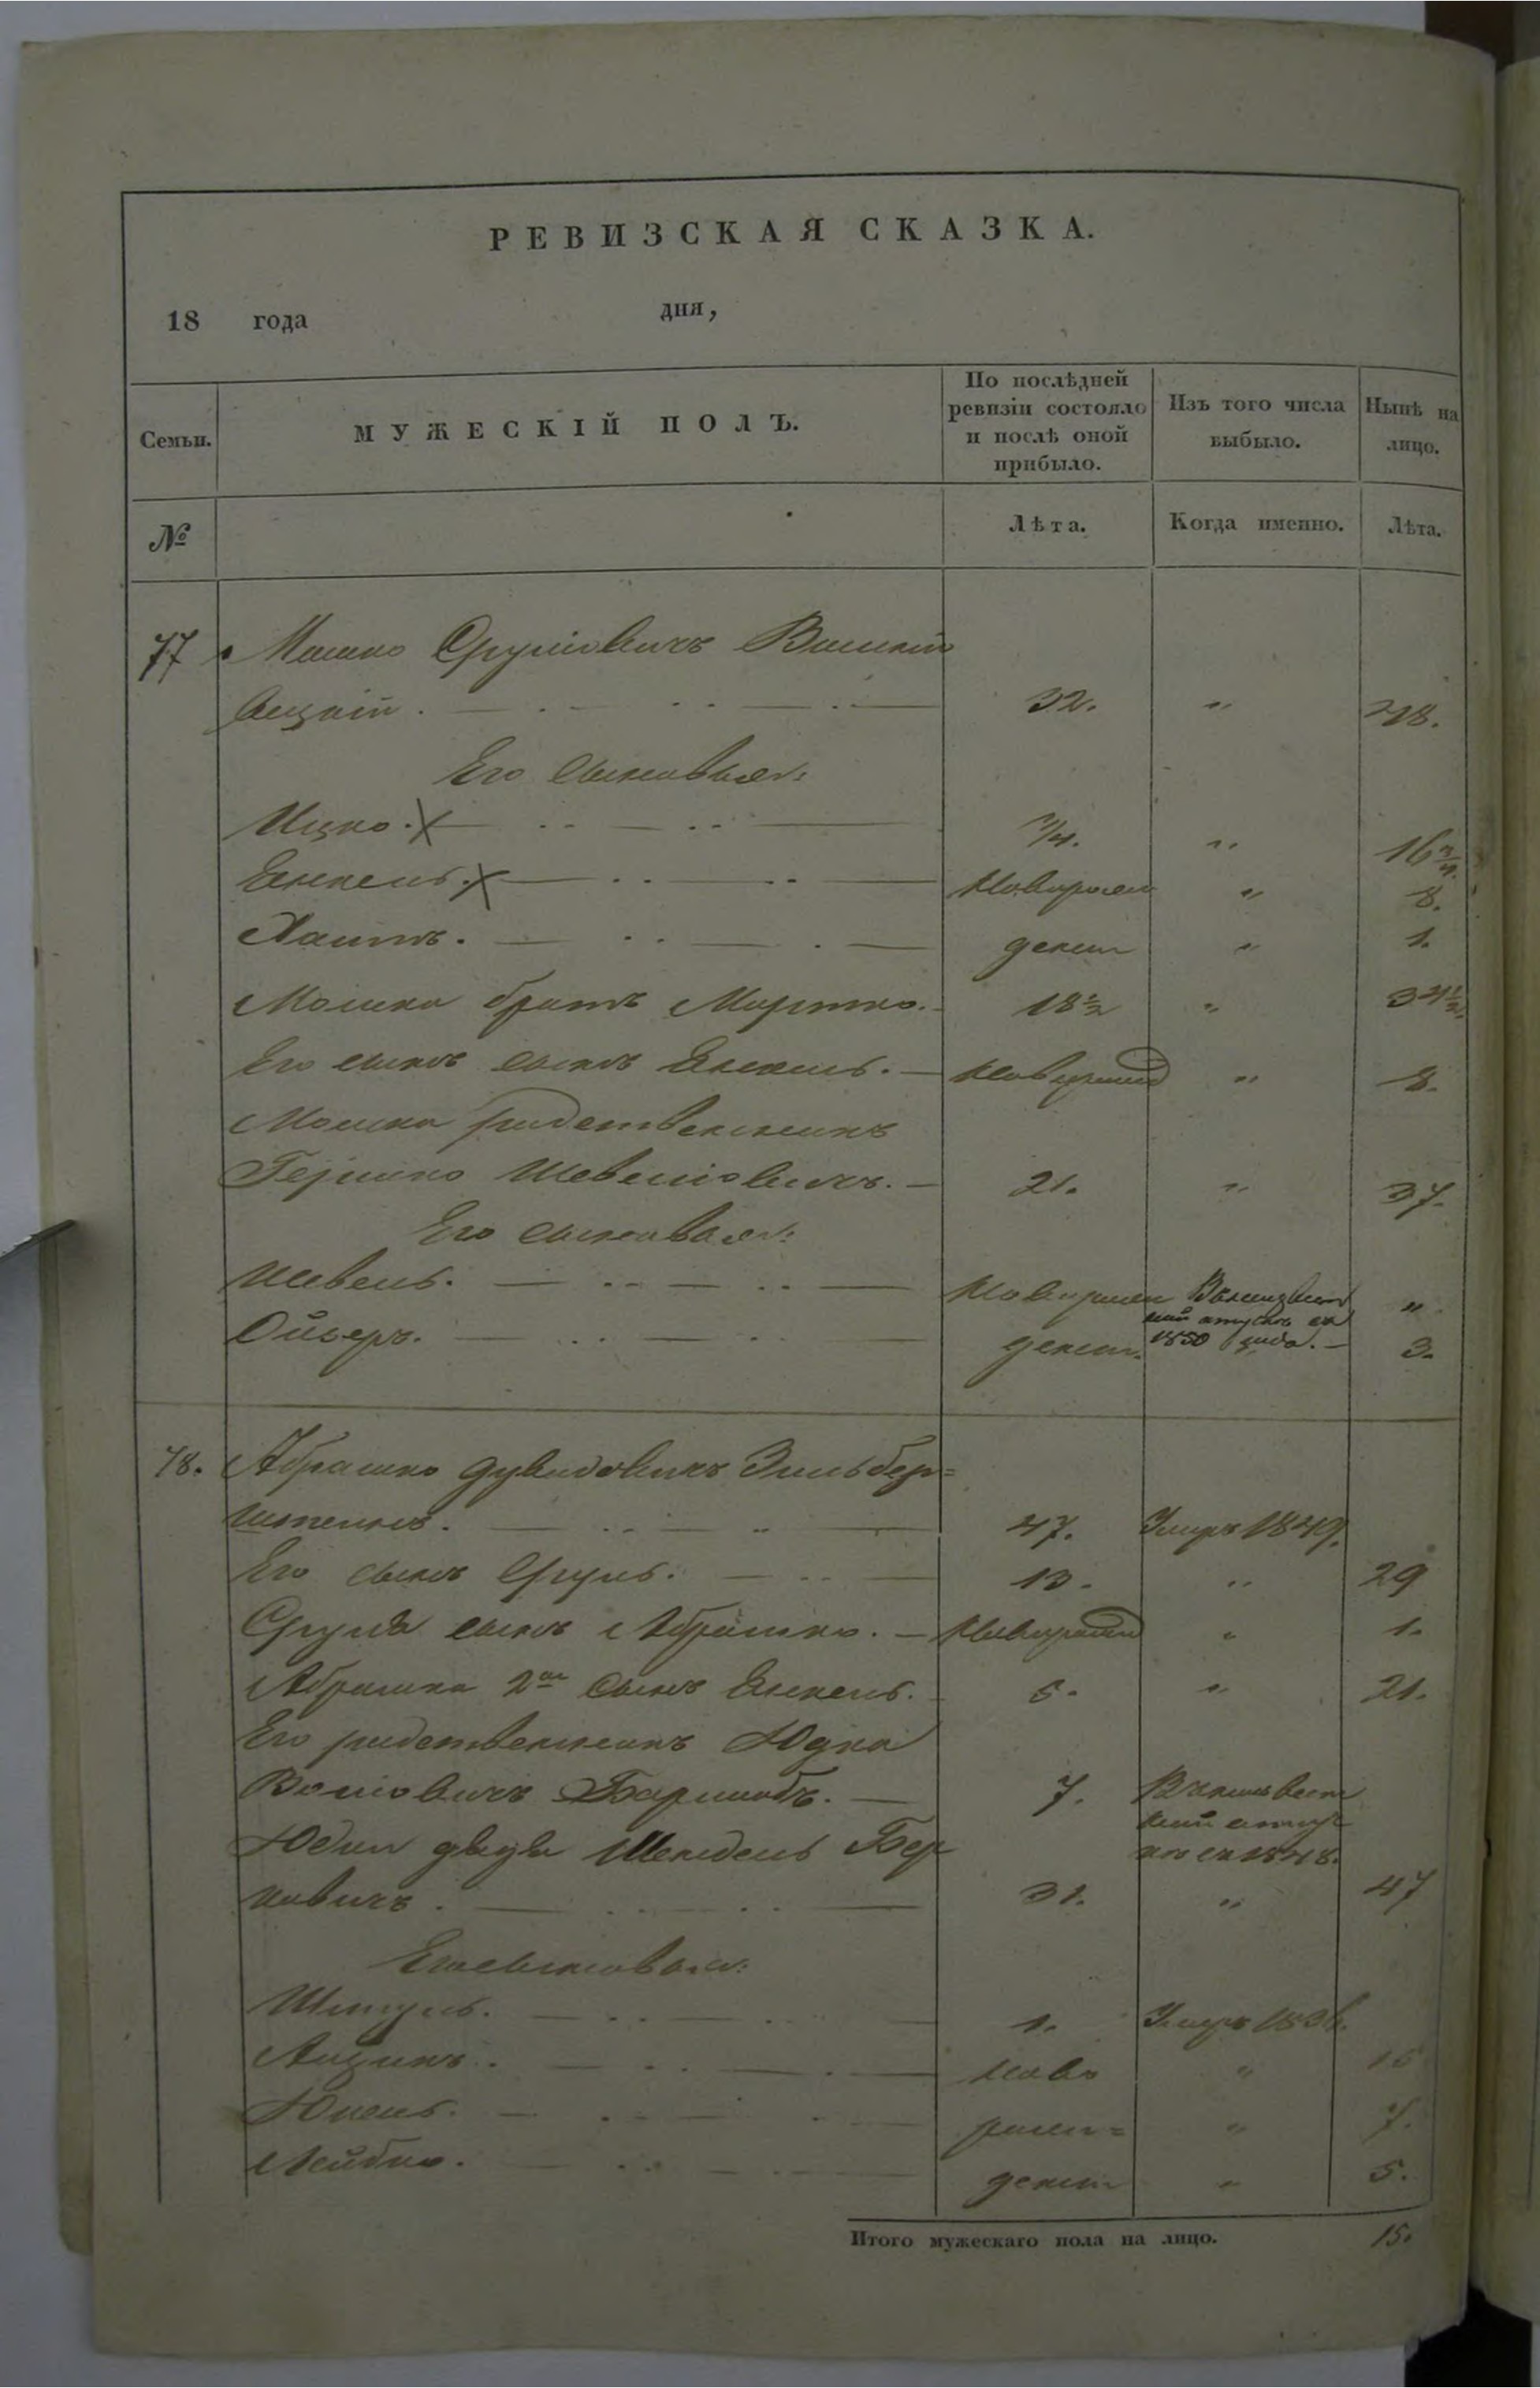 РЕВИЗСКАЯ СКАЗКА.
18 года дня,
Семьи. МУЖЕСКІЙ ПОЛЪ. По послѣдней ревизіи состояло и послѣ оной прибыло. Изъ того числа выбыло. Нынѣ на лицо.
№ Лѣта. Когда именно. Лѣта.
77 Мошко Срулiовичъ
32. " 48.
Его сыновья:
Ицко. X 3/4. " 16 3/4.
Янкель. X Новорож " 8.
Хаимъ. денн " 1.
Мошка братъ Мортко. 18 1/2 " 34 1/2.
Его сынъ сынъ Янкель. Новорожд " 8.
Мошка родственникъ
Гершко Шевелiовичъ. 21. " 37.
Его сыновья:
Шевель. Новорож Въ неизвѣст "
ной отлучкѣ съ
Ойзеръ. денн. 1850 года. 3.
78. Абрашко Дувидовичъ Зильбер=
штейнъ. 47. Умеръ 1849.
Его сынъ Сруль. 13. " 29
Сруля сынъ Абрашко. Новорожд " 1.
Абрашка 2ой сынъ Янкель. 5. " 21.
Его родственникъ Юдка
Волiовичъ 7. Въ неизвѣст
ной отлуч
Юдки дядя Шендель Бер кѣ съ 1848.
ковичъ. 31. " 47
Его сыновья:
Шмуль. 1. Умеръ 183
ново "
рожд= " 7.
Лейбко. денн " 5.
Итого мужескаго пола на лицо. 15.